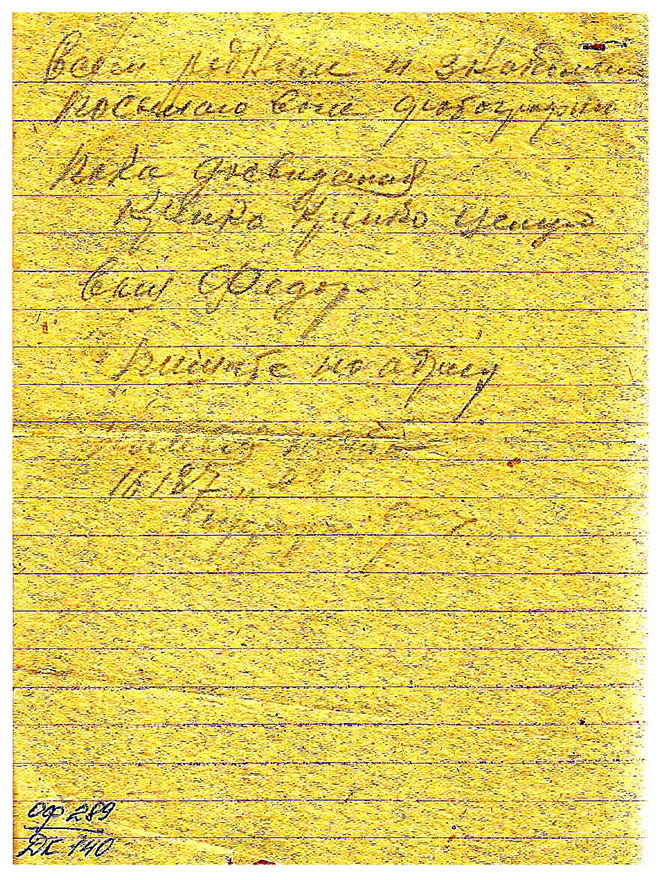 Всем родным и знакомым
посылаю свои фотографии
Пока досвидания
Крепко Крепко Целую
Ваш Федор
Пишите по адресу
Полевая почта
16187 "
ОФ 289
ДК 140